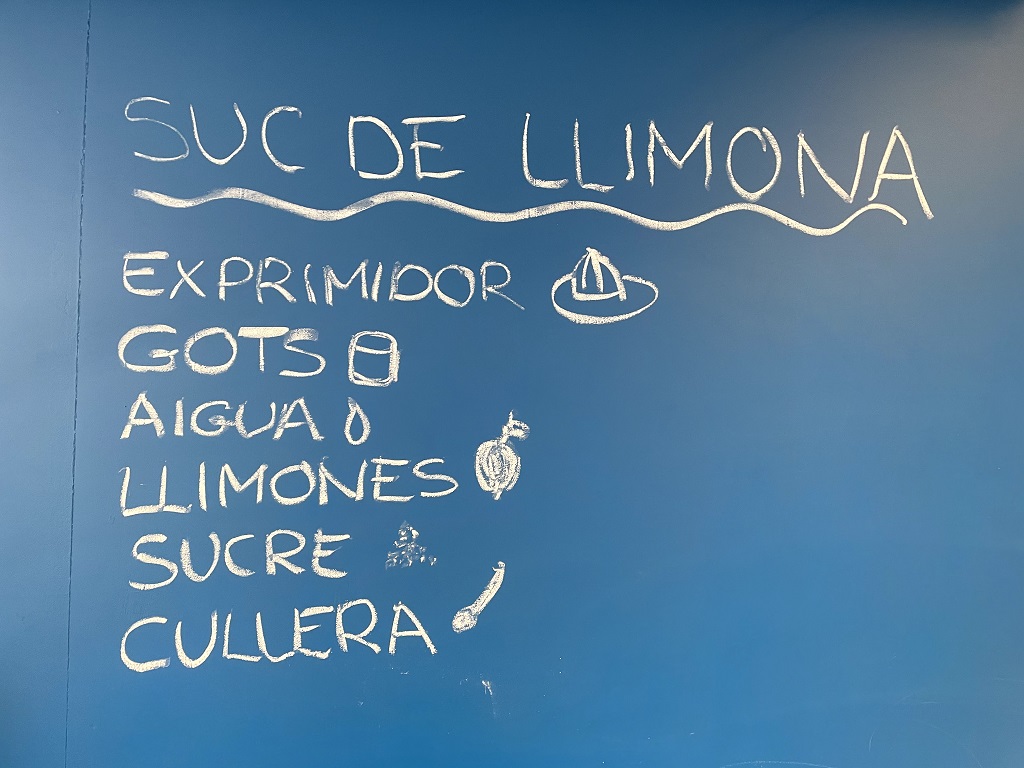 SUC DE LLIMONA
EXPRIMIDOR
GOTS
AIGUA
LLIMONES
SUCRE
CULLERA